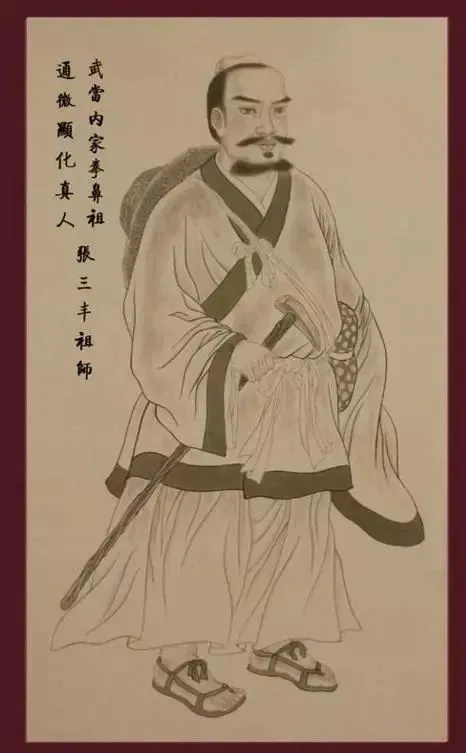 武當内家拳鼻祖
通微顯化真人
張三丰祖師